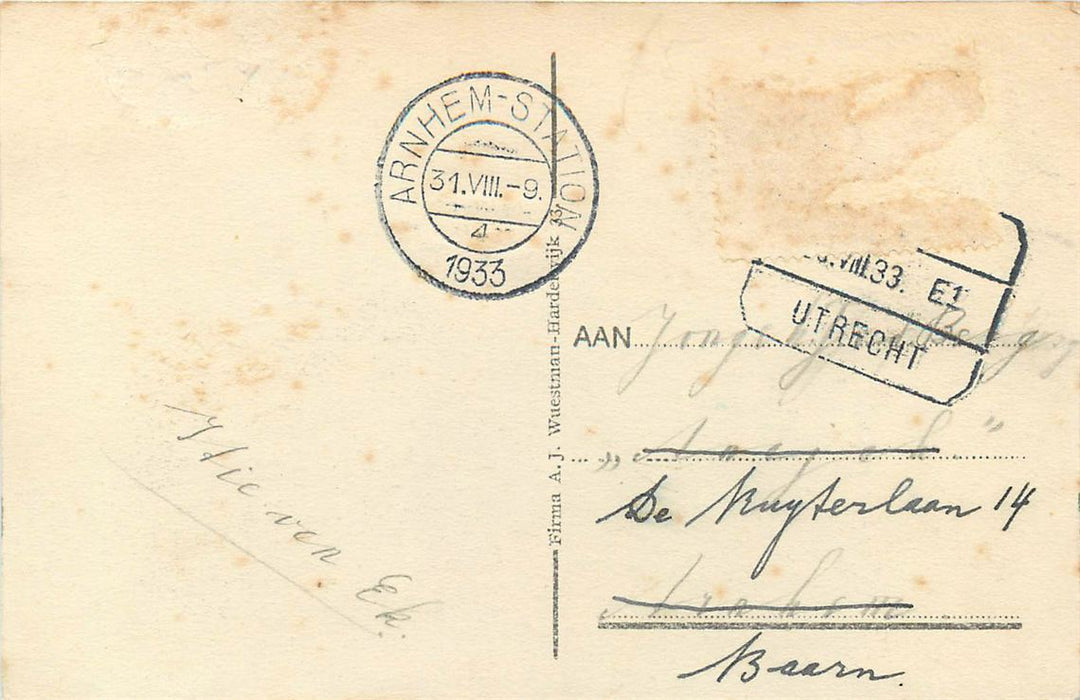 ARNHEM-STATION
31.VIII.-9.
4
1933
VIII.33. E1
UTRECHT
AAN
De Ruyterlaan 14
Arnhem
Baarn.
van Ek.
Firma A. J. Wuestman-Harderwijk 33